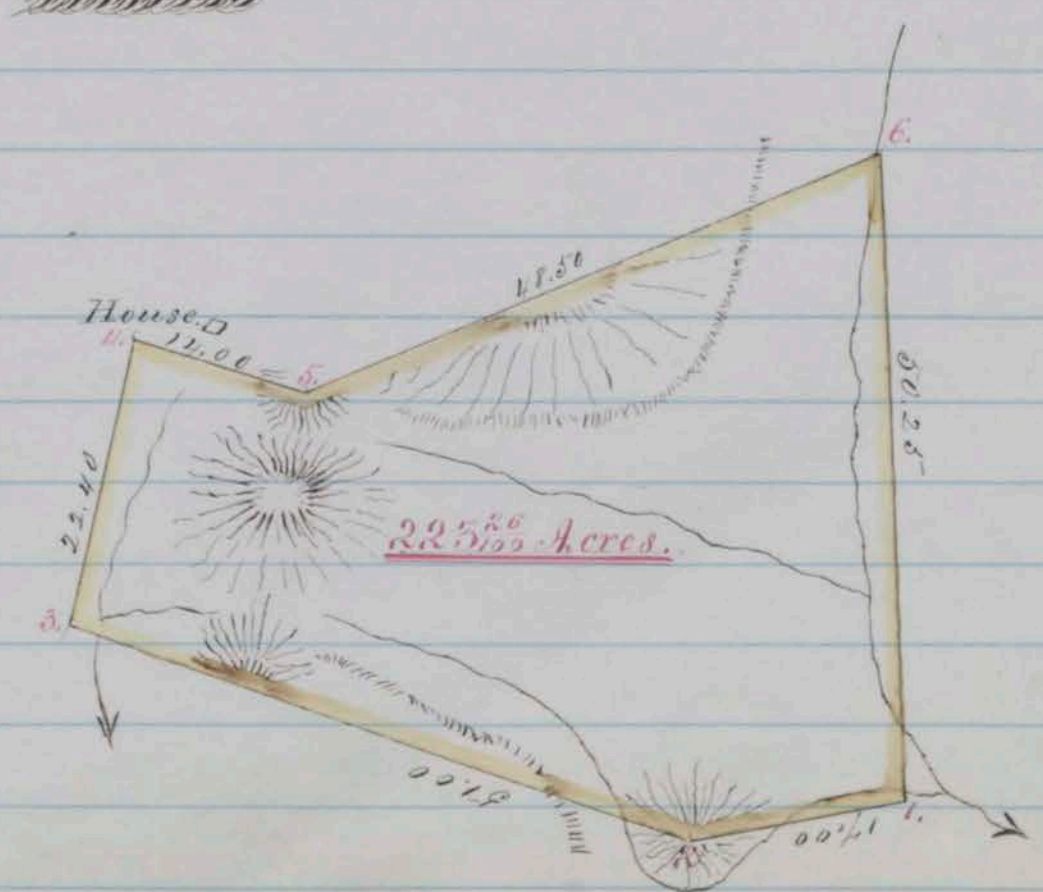 6.
48.50
House.
4.
14.00
5.
50.25
22.40
225 26/100 Acres.
3.
51.00
2.
17.00
1.